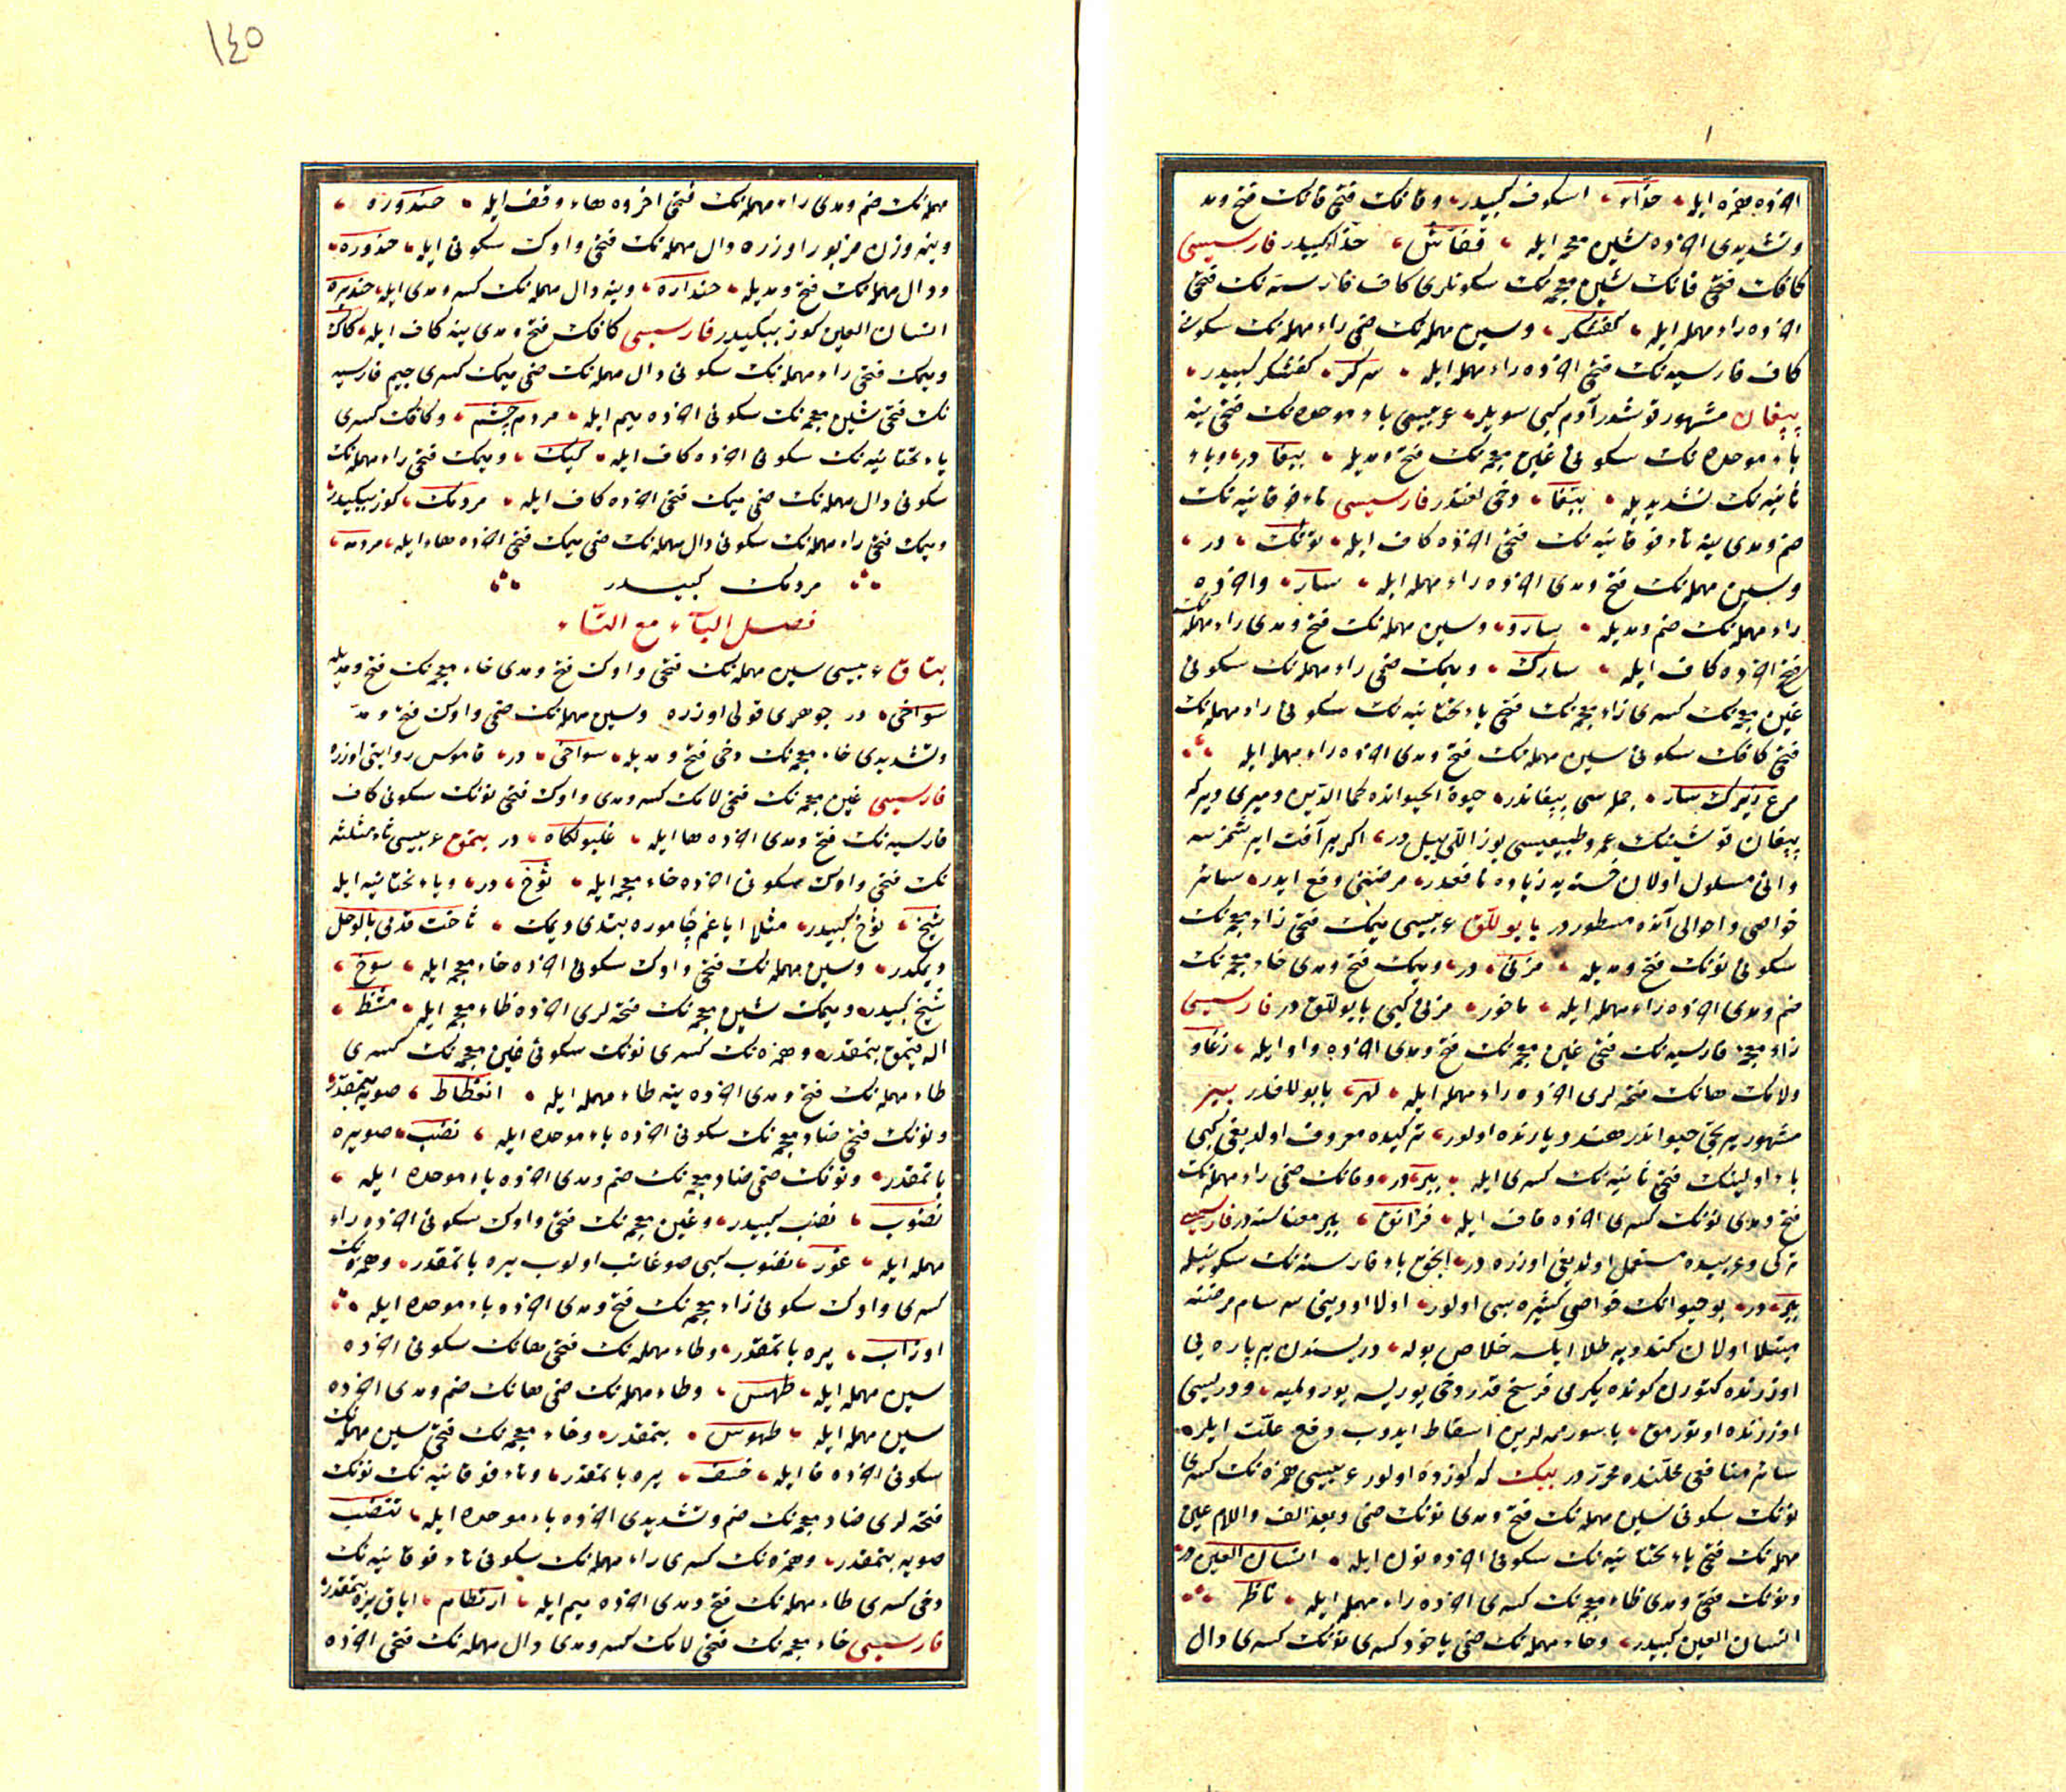 اخرده همزه ایله حذاء اسکوف کبیدر و قافک فتحی فانک فتح و مد
و تشدیدی اخرده شین معجمه ایله قفاش حذاء کبیدر فارسیسی
کافک فتحی فانک شین معجمه نک سکونلری کاف فارسیه نک فتحی
اخرده راء مهمله ایله کفشکر و سین مهمله نک ضمی راء مهمله نک سکونی
کاف فارسیه نک فتحی اخرده راء مهمله ایله سرکر کفشکر کبیدر
پپغان مشهور قوشدر آدم کبی سویلر عربیسی باء موحده نک فتحی ینه
باء موحده نک سکونی غین معجمه نک فتح و مدیله ببغا در و باء
ثانیه نک تشدیدیله ببّغا دخی لغتدر فارسیسی تاء فوقانیه نک
ضم و مدی ینه تاء فوقانیه نک فتحی اخرده کاف ایله توتک در
و سین مهمله نک فتح و مدی اخرده راء مهمله ایله سار و اخرده
راء مهمله نک ضم و مدیله سارو و سین مهمله نک فتح و مدی راء مهمله نک
فتحی اخرده کاف ایله سارک و میمک ضمی راء مهمله نک سکونی
غین معجمه نک کسری زاء معجمه نک فتحی یاء تحتانیه نک سکونی راء مهمله نک
فتحی کافک سکونی سین مهمله نک فتح و مدی اخرده راء مهمله ایله
مرغ زیرک سار جمله سی پپغاندر حیوة الحیوانده کمال الدین دمیری دیر که
پپغان قوشینک عمر و طبیعیسی یوز اللی ییل در اکر بر آفت ایرشمزسه
و اتی مسلول اولان خسته یه زیاده نافعدر مرضنی دفع ایدر سائر
خواصی و احوالی آنده مسطور در بابوللق عربیسی میمک فتحی زاء معجمه نک
سکونی نونک فتح و مدیله مزنی در و میمک فتح و مدی خاء معجمه نک
ضم و مدی اخرده راء مهمله ایله ماخور مزنی کبی بابوللق در فارسیسی
زاء معجمه فارسیه نک فتحی غین معجمه نک فتح و مدی اخرده واو ایله زغاو
و لامک هانک فتحه لری اخرده راء مهمله ایله لهر بابوللقدر ببر
مشهور یرتجی حیواندر هند دیارنده اولور ترکیده معروف اولدیغی کبی
باء اولینک فتحی ثانیه نک کسری ایله ببر در و فانک ضمی راء مهمله نک
فتح و مدی نونک کسری اخرده قاف ایله فرانق ببر معناسنه در فارسیسی
ترکی و عربیده مستعمل اولدیغی اوزره در انجق باء فارسیه نک سکونیله
ببر در بو حیوانک خواص کثیره سی اولور اولا اودینی سرسام مرضنه
مبتلا اولان کندویه طلا ایلسه خلاص بوله دریسندن بر پاره یی
اوزرنده کتورن کونده یکرمی فرسخ قدر دخی یوریسه یورولمیه و دریسی
اوزرنده اوتورمق باسور ممه لرین اسقاط ایدوب دفع علت ایلر
سائر منافعی محلنده محرر در ببک که کوزده اولور عربیسی همزه نک کسری
نونک سکونی سین مهمله نک فتح و مدی نونک ضمی و بعد الف و اللام عین
مهمله نک فتحی یاء تحتانیه نک سکونی اخرده نون ایله انسان العین در
و نونک فتح و مدی ظاء معجمه نک کسری اخرده راء مهمله ایله ناظر
انسان العین کبیدر و حاء مهمله نک ضمی یاخود کسری نونک کسری دال
١٤٥
مهمله نک ضم و مدی راء مهمله نک فتحی اخرده هاء وقف ایله حندوره
و ینه وزن مزبور اوزره دال مهمله نک فتحی واوک سکونی ایله حندوره
و دال مهمله نک فتح و مدیله حنداره و ینه دال مهمله نک کسر و مدی ایله حندیره
انسان العین کوز ببکیدر فارسیسی کافک فتح و مدی ینه کاف ایله کاک
و میمک فتحی راء مهمله نک سکونی دال مهمله نک ضمی میمک کسری جیم فارسیه
نک فتحی شین معجمه نک سکونی اخرده میم ایله مردم چشم و کافک کسری
یاء تحتانیه نک سکونی اخرده کاف ایله کیک و میمک فتحی راء مهمله نک
سکونی دال مهمله نک ضمی میمک فتحی اخرده کاف ایله مردمک کوز ببکیدر
و میمک فتحی راء مهمله نک سکونی دال مهمله نک ضمی میمک فتحی اخرده هاء ایله مردمه
مردمک کبیدر
فصل الباء مع التاء
بتاق عربیسی سین مهمله نک فتحی واوک فتح و مدی خاء معجمه نک فتح و مدیله
سواخی در جوهری قولی اوزره و سین مهمله نک ضمی واوک فتح و مد
و تشدیدی خاء معجمه نک دخی فتح و مدیله سواخی در قاموس روایتی اوزره
فارسیسی غین معجمه نک فتحی لامک کسر و مدی واوک فتحی نونک سکونی کاف
فارسیه نک فتح و مدی اخرده ها ایله غلیولنکاه در بتمق عربیسی ثاء مثلثه
نک فتحی واوک سکونی اخرده خاء معجمه ایله ثوخ در و یاء تحتانیه ایله
ثیخ ثوخ کبیدر مثلا ایاغم چاموره بتدی دیمک ثاخت قدمی بالوحل
دیمکدر و سین مهمله نک فتحی واوک سکونی اخرده خاء معجمه ایله سوخ
ثیخ کبیدر و میمک شین معجمه نک فتحه لری اخرده ظاء معجمه ایله مشظ
اله قیمق بتمقدر و همزه نک کسری نونک سکونی غین معجمه نک کسری
طاء مهمله نک فتح و مدی اخرده ینه طاء مهمله ایله انغطاط صویه بتمقدر
و نونک فتحی ضاد معجمه نک سکونی اخرده باء موحده ایله نضب صو یره
باتمقدر و نونک ضمی ضاد معجمه نک ضم و مدی اخرده باء موحده ایله
نضوب نضب کبیدر و غین معجمه نک فتحی واوک سکونی اخرده راء
مهمله ایله غور نضوب کبی صو غائب اولوب یره باتمقدر و همزه نک
کسری واوک سکونی زاء معجمه نک فتح و مدی اخرده باء موحده ایله
اوزاب یره باتمقدر و طاء مهمله نک فتحی هانک سکونی اخرده
سین مهمله ایله طهس و طاء مهمله نک ضمی هانک ضم و مدی اخرده
سین مهمله ایله طهوس بتمقدر و خاء معجمه نک فتحی سین مهمله نک
سکونی اخرده فا ایله خسف یره باتمقدر و تاء فوقانیه نک نونک
فتحه لری ضاد معجمه نک ضم و تشدیدی اخرده باء موحده ایله تنضب
صویه بتمقدر و همزه نک کسری راء مهمله نک سکونی تاء فوقانیه نک
دخی کسری طاء مهمله نک فتح و مدی اخرده میم ایله ارتطام ایاق یره بتمقدر
فارسیسی خاء معجمه نک فتحی لامک کسر و مدی دال مهمله نک فتحی اخرده